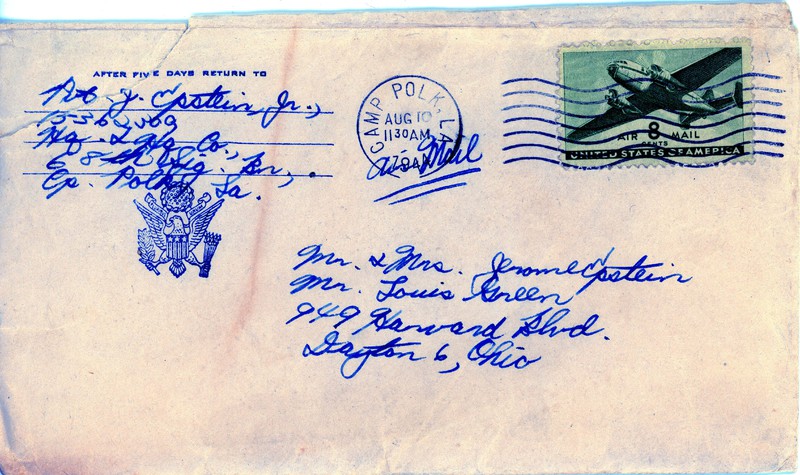 AFTER FIVE DAYS RETURN TO
Pvt. J. Epstein, Jr.,
Hq. & Hq. Co.,
8th Sig. Bn.,
Cp. Polk, La.
CAMP POLK, LA.
AUG 10
11 30 AM
Air Mail
AIR 8 MAIL
CENTS
UNITED STATES OF AMERICA
Mr. & Mrs. Jerome Epstein
Mr. Louis Green
949 Harvard Blvd.
Dayton 6, Ohio